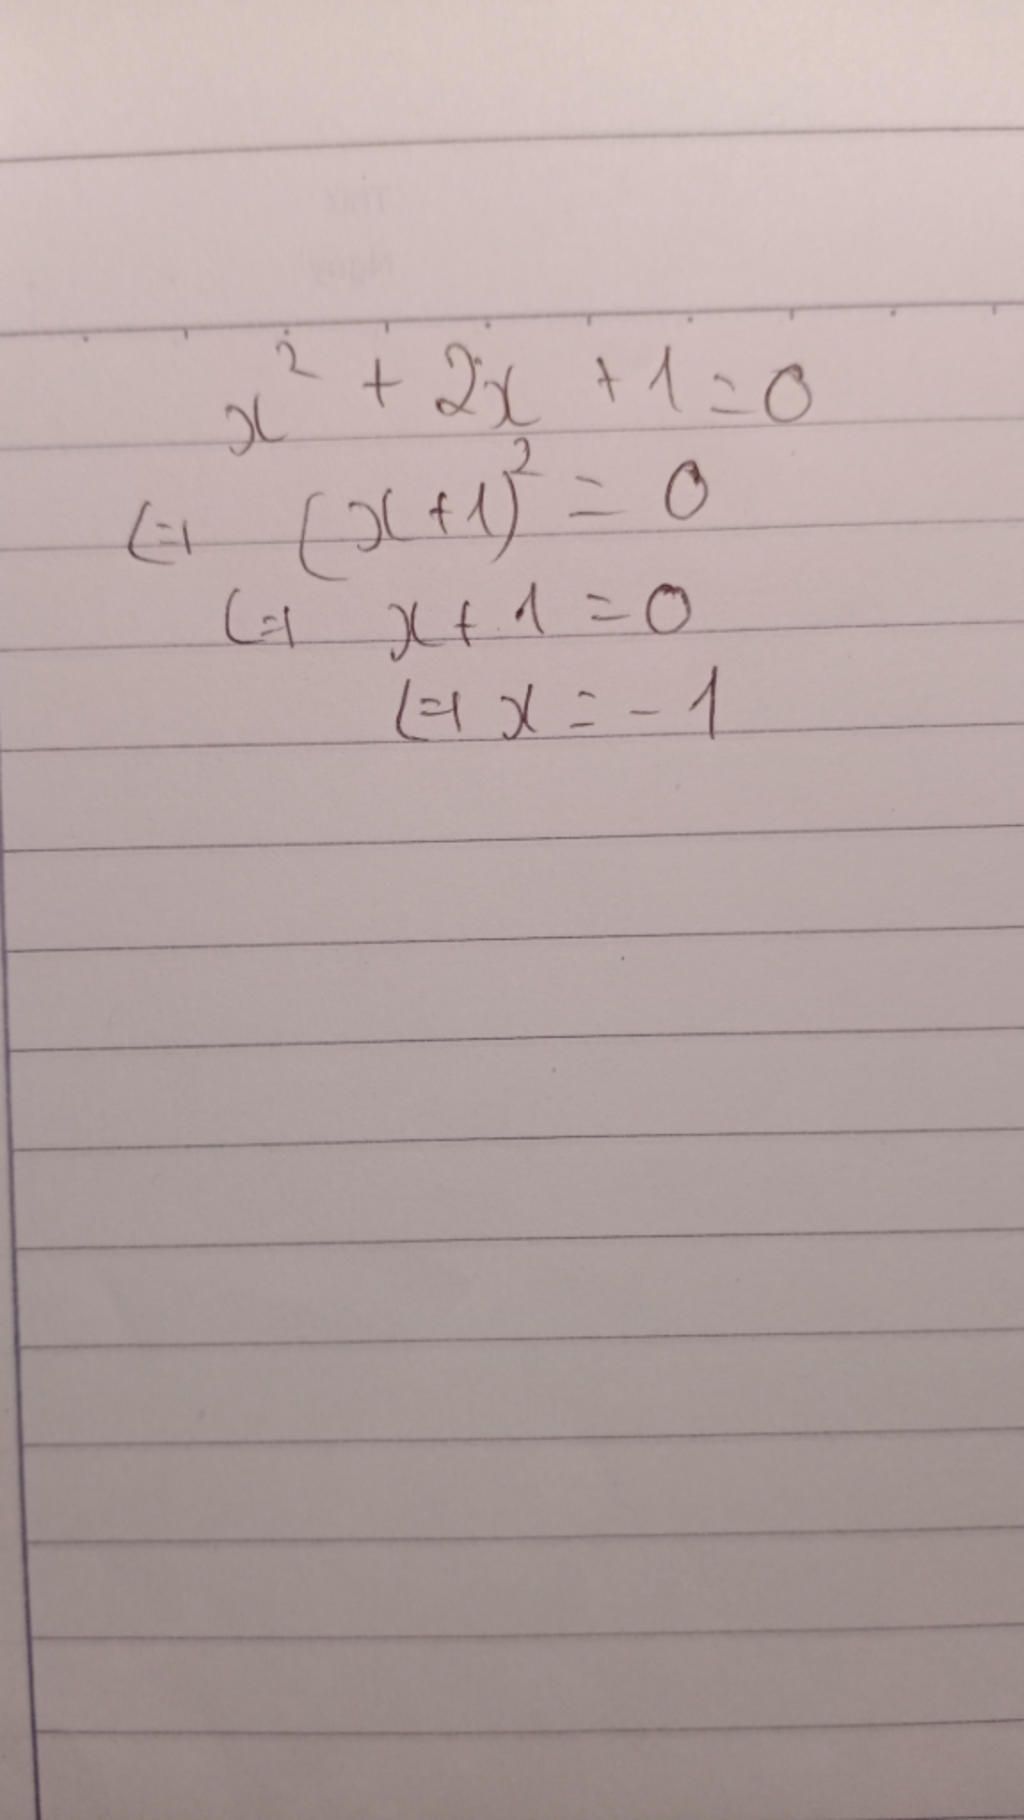 x² + 2x + 1 = 0
⇔ (x+1)² = 0
⇔ x + 1 = 0
⇔ x = -1